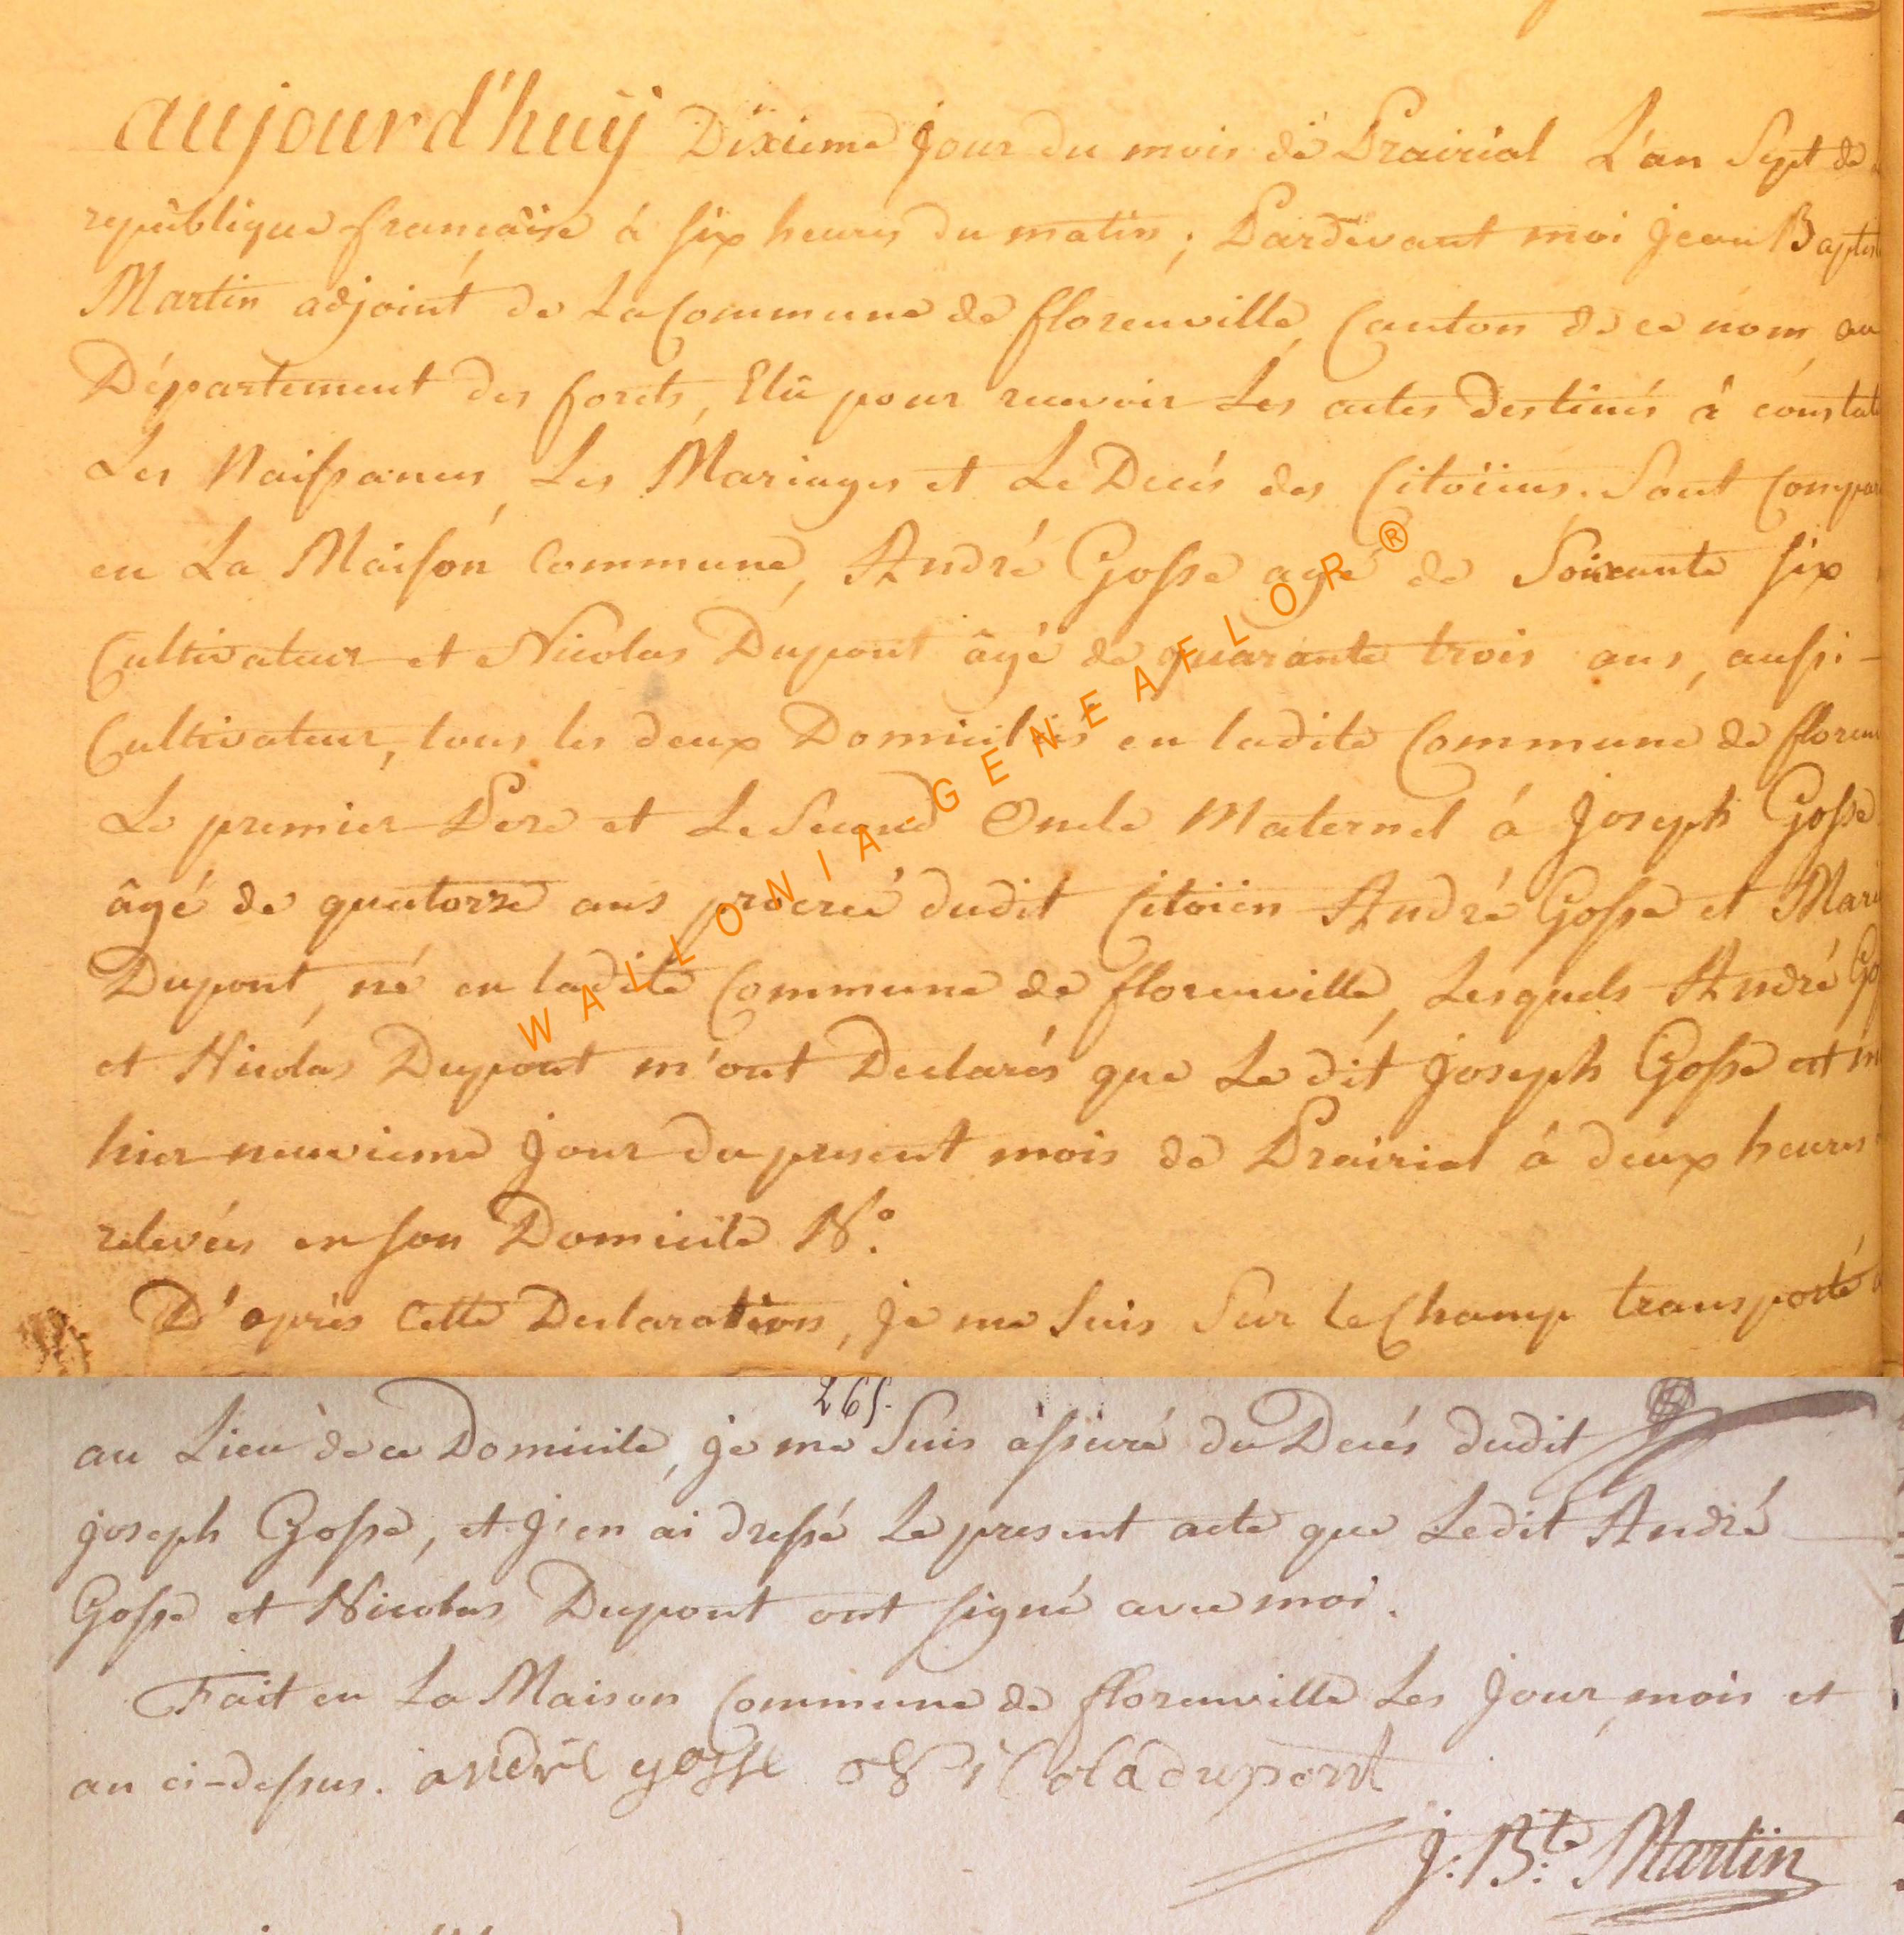 aujourd'huÿ Dixieme jour du mois de Prairial L'an Sept de
republique française à six heures du matin; Pardevant moi jean Baptis
Martin adjoint de La Commune de florenville, Canton de ce nom, au
Département des forets, Elû pour recevoir Les actes destinés à constat
Les Naissances, Les Mariages et Le Decés des Citoïens. Sont Compar
en La Maison Commune, André Gosse agé de Soixante six
Cultivateur et Nicolas Dupont âgé de quarante trois ans, aussi-
Cultivateur, tous les deux Domiciliés en ladite Commune de floren
Le premier Pere et Le Second Oncle Maternel à joseph Gosse
âgé de quatorze ans procreé dudit Citoïen André Gosse et Mari
Dupont, né en ladite Commune de florenville, Lesquels André Go
et Nicolas Dupont m'ont Declarés que Le dit joseph Gosse est m
hier neuvieme jour du present mois de Prairial à deux heures
relevées en son Domicile N°.
D'après Cette Declaration, je me Suis Sur le Champ transporté
265.
au Lieu de ce Domicile, je me Suis assuré du Decés dudit
joseph Gosse, et j'en ai dressé Le present acte que Ledit André
Gosse et Nicolas Dupont ont signé avec moi.
Fait en La Maison Commune de florenville Les jour, mois et
an ci-dessus. andré gosse Nicola dupont
j: B:te Martin
WALLONIA-GENEAFLOR®